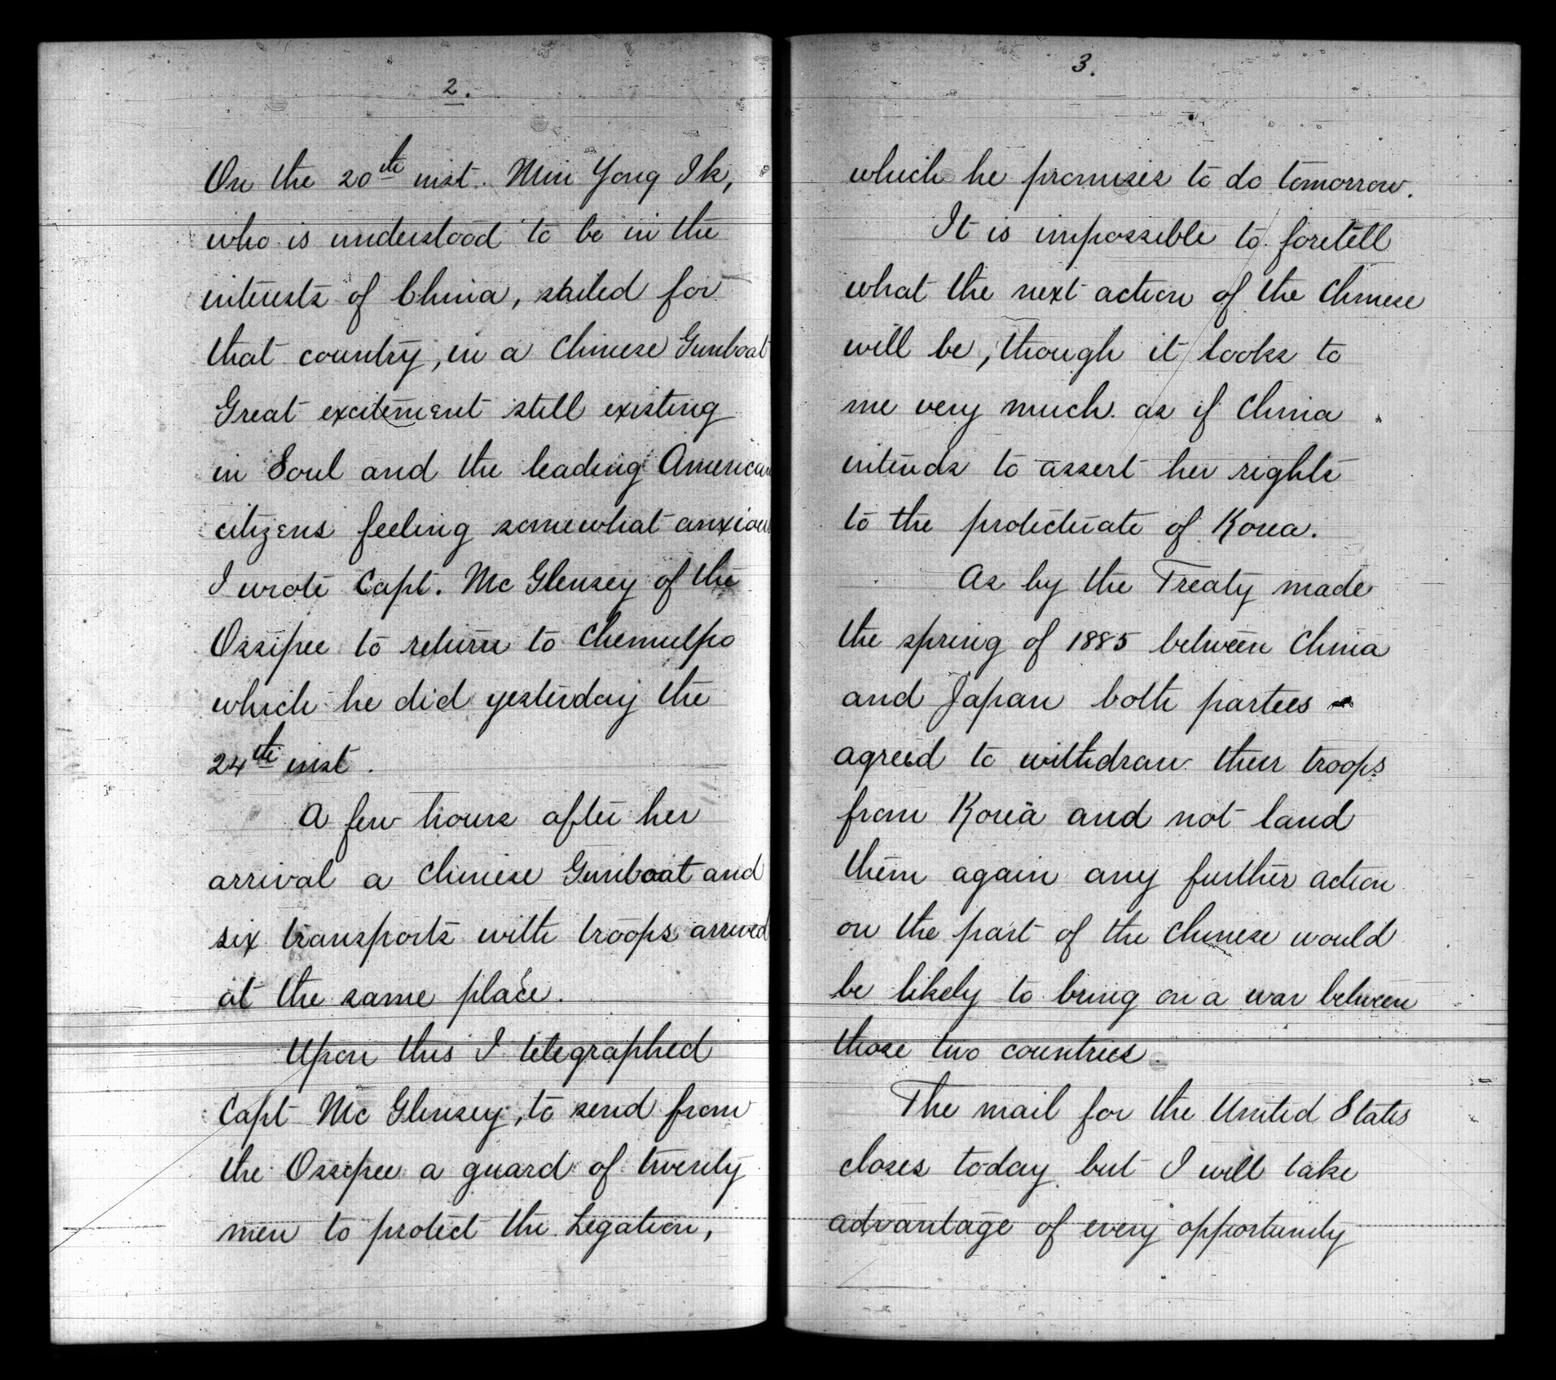 2.
On the 20th inst. Min Yong Ik,
who is understood to be in the
interests of China, sailed for
that country, in a Chinese Gunboat
Great excitement still existing
in Soul and the leading American
citizens feeling somewhat anxious
I wrote Capt. Mc Glensey of the
Ossipee to return to Chemulpo
which he did yesterday the
24th inst.
A few hours after her
arrival a Chinese Gunboat and
six transports with troops arrived
at the same place.
Upon this I telegraphed
Capt Mc Glensey, to send from
the Ossipee a guard of twenty
men to protect the Legation,
3.
which he promises to do tomorrow.
It is impossible to foretell
what the next action of the Chinese
will be, though it looks to
me very much as if China
intends to assert her rights
to the protectuate of Korea.
As by the Treaty made
the spring of 1885 between China
and Japan both parties
agreed to withdraw their troops
from Korea and not land
them again any further action
on the part of the Chinese would
be likely to bring on a war between
those two countries.
The mail for the United States
closes today but I will take
advantage of every opportunity